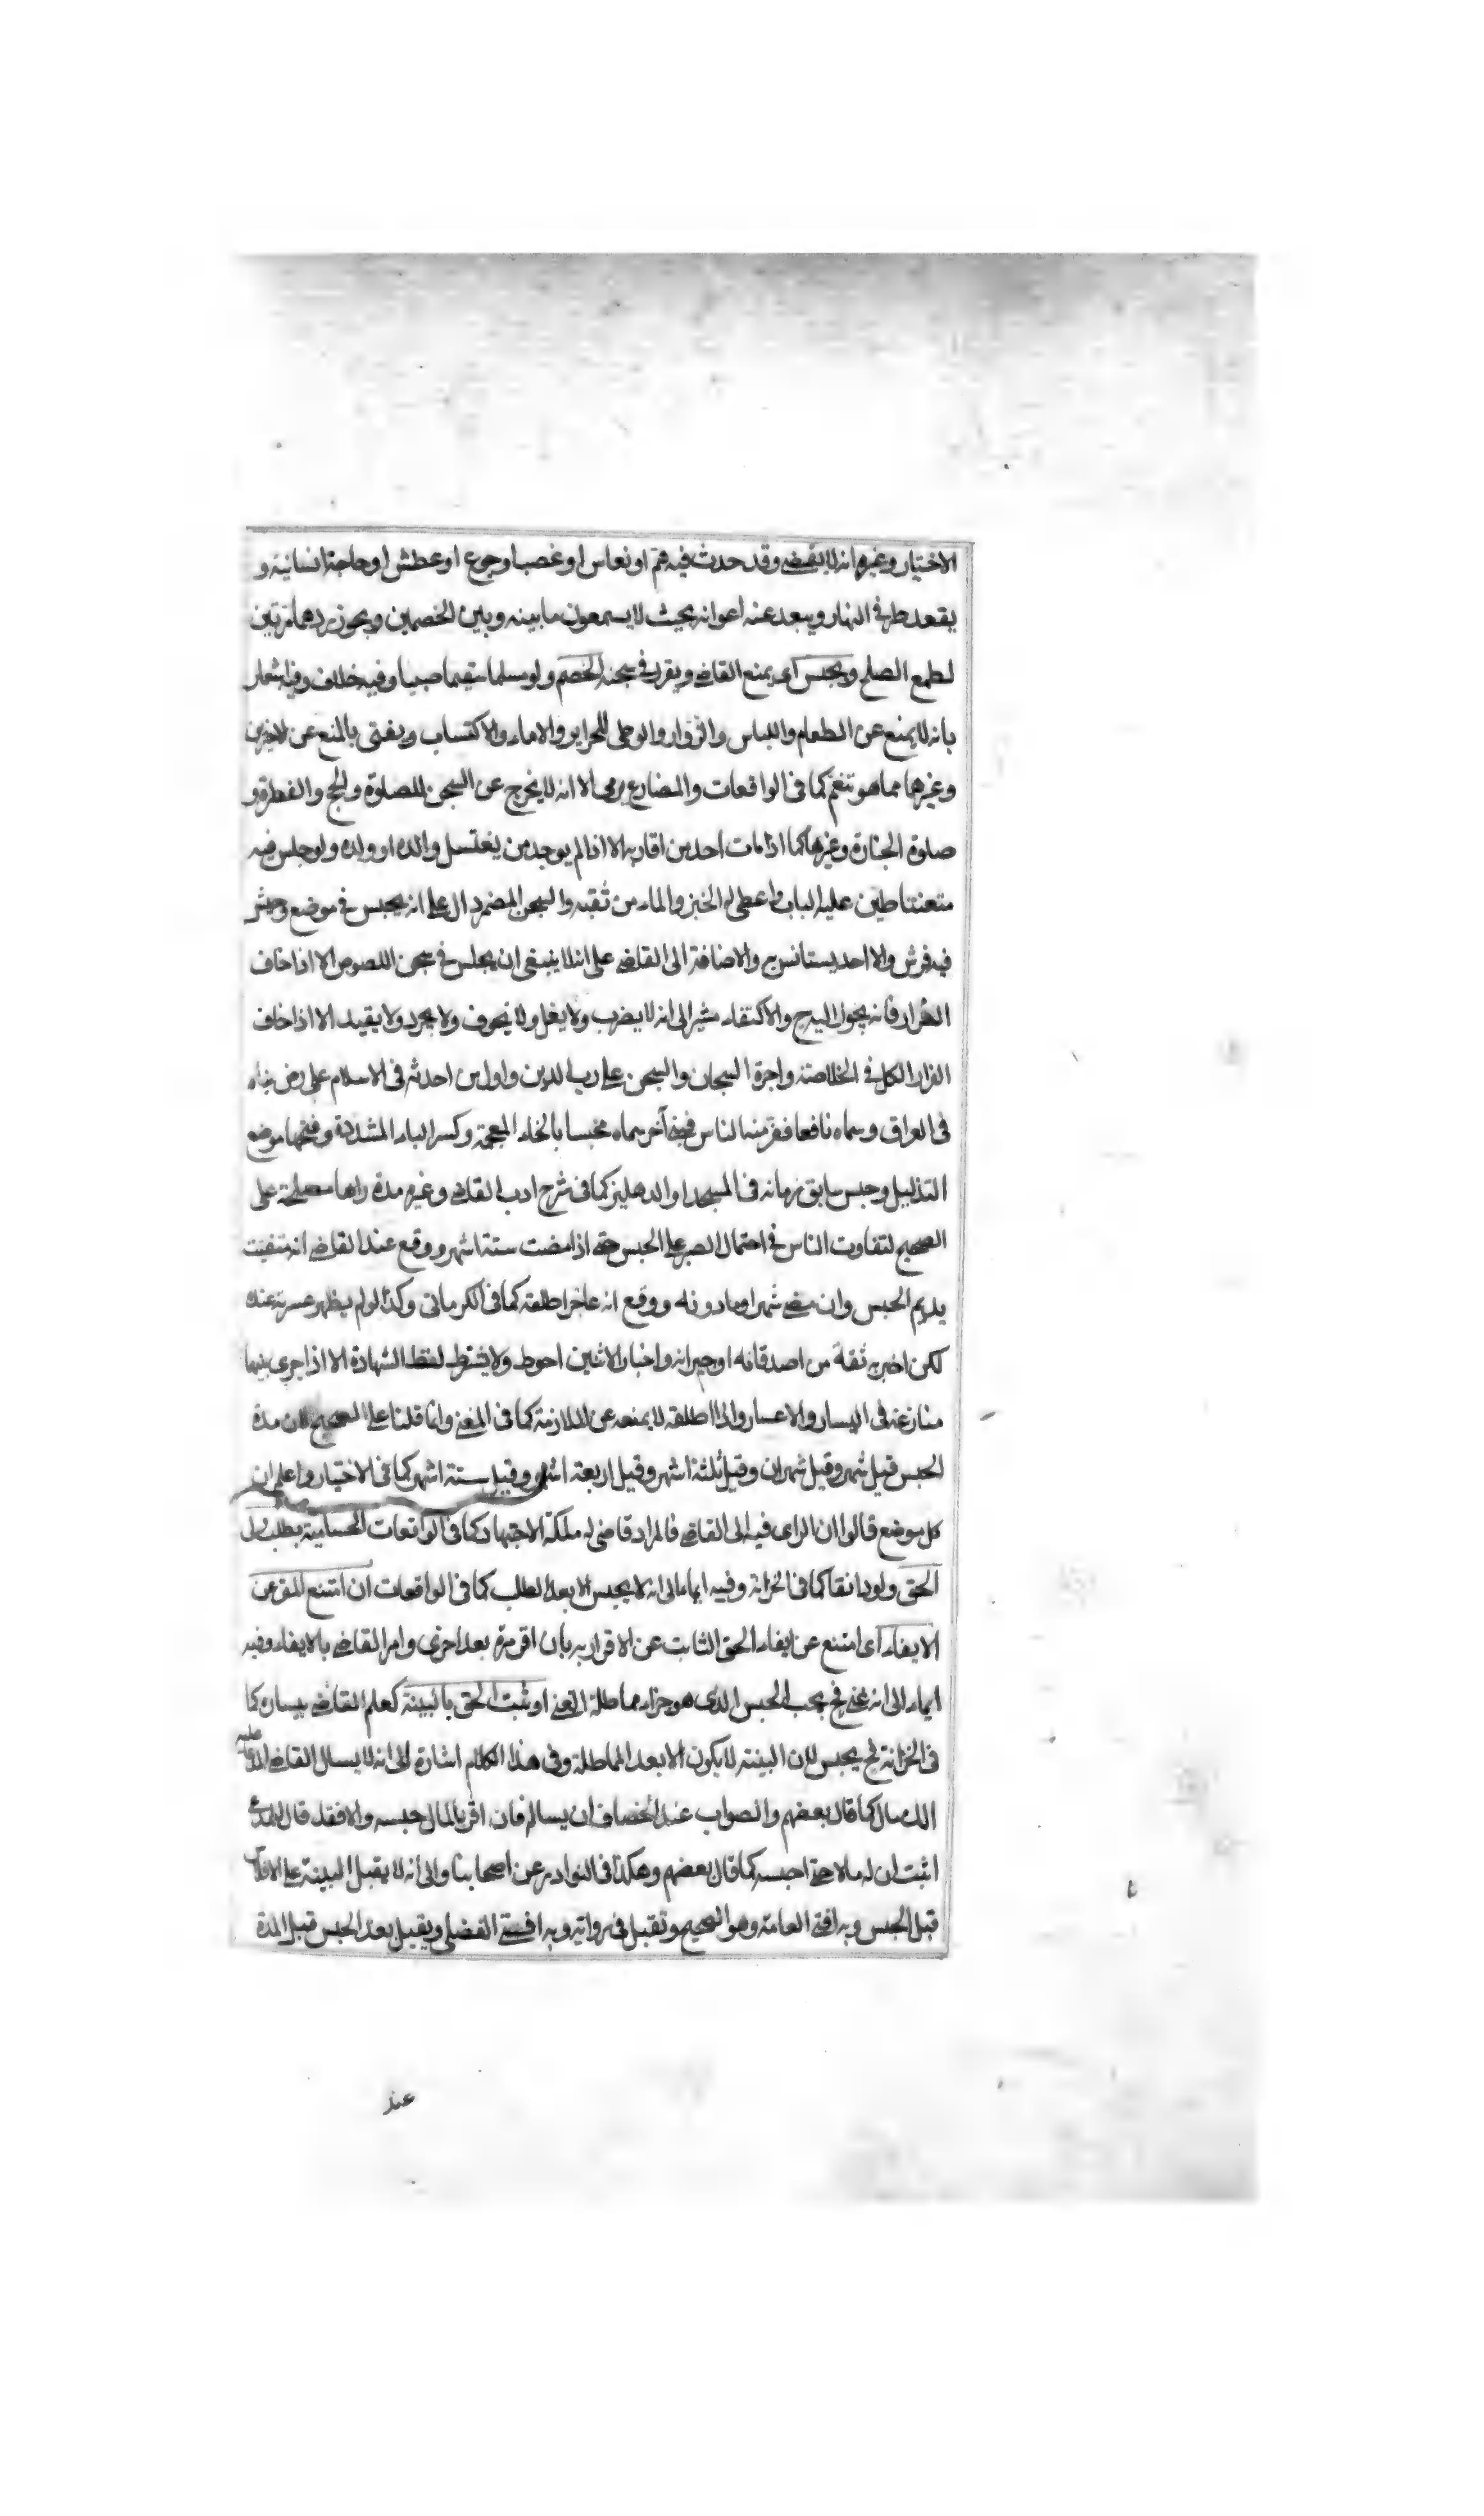 الاختيار وغيرها انه لا يقضى وقد حدث فيه هم او نعاس او غضب او جوع او عطش او حاجة انسانية و
يقعد طرفى النهار ويبعد عنه اعوانه بحيث لا يسمعون ما بينه وبين الخصمين ويجوز ردهما مرتين
لطمع الصلح ويحبس اى يمنع القاضى ويقر فى سجنه الخصم ولو مسلما مقيما صبيا وفيه خلاف وفيه اشعار
بانه لا يمنع عن الطعام واللباس والزوار والوطى للحراير والاماء والاكتساب ويفتى بالمنع عن
وغيرها مما هو تنعم كما فى الواقعات والمضارع يرمى الا انه لا يخرج عن السجن للصلوة والحج والفطرة و
صلوة الجنازة وغيرها كما اذا مات احد من اقاربه الا اذا لم يوجد من يغتسل والده او ولده ولو جلس فيه
متعنتا طين عليه الباب واعطى له الخبز والماء من ثقبه والسجن المضمر دال على انه يحبس فى موضع وحش
فيه فرش ولا احد يستانس به والاضافة الى القاضى على انه لا ينبغى ان يجلس فى سجن اللصوص الا اذا خاف
الفرار فانه يحول اليه والاكتفاء مشير الى انه لا يضرب ولا يغل ولا يخوف ولا يجرد ولا يقيد الا اذا خاف
الفرار الكل فى الخلاصة واجرة السجان والسجن على رب الدين واول من احدثه فى الاسلام على رض بناه
فى العراق وسماه نافعا ففر منه الناس فبنى آخر سماه مخبسا بالخاء المعجمة وكسر الباء المشددة وفتحها موضع
التذليل وحبس سابق زمانه فى المسجد او الدهليز كما فى شرح ادب القاضى وغيره مدة راها مصلحة على
الصحيح لتفاوت الناس فى احتمال الصبر على الحبس حتى اذا مضت ستة اشهر ووقع عند القاضى انه متعنت
يديم الحبس وان مضى شهر او ما دونه ووقع انه عاجز اطلقه كما فى الكرمانى وكذا لو لم يظهر عسرته عنده
لكن اخبر به ثقة من اصدقائه او جيرانه واخبار الاثنين احوط ولا يشترط لفظ الشهادة الا اذا جرى بينهما
منازعة فى اليسار والاعسار واذا اطلقه لا يمنعه عن الملازمة كما فى المغنى وانما قلنا على الصحيح لان مدة
الحبس قيل شهر وقيل شهران وقيل ثلثة اشهر وقيل اربعة اشهر وقيل ستة اشهر كما فى الاختيار واعلم ان
كل موضع قالوا ان الراى فيه الى القاضى فالمراد قاضى له ملكة الاجتهاد كما فى الواقعات الحسامية بطلب ولى
الحق ولو دانقا كما فى الخزانة وفيه ايماء الى انه لا يحبس الا بعد الطلب كما فى الواقعات ان امتنع المقر عن
الايفاء اى امتنع عن ايفاء الحق الثابت عن الاقرار به بان اقر مرة بعد اخرى وامر القاضى بالايفاء وفيه
ايماء الى انه غنى فح يجب الحبس الذى هو جزاء مماطلة الغنى او ثبت الحق بالبينة كعلم القاضى بيساره كما
فى الخزانة فح يحبس لان البينة لا يكون الا بعد المماطلة وفى هذا الكلام اشارة الى انه لا يسال القاضى المدعى عليه
الك مال كما قال بعضهم والصواب عند الخصاف ان يساله فان اقر بالمال حبسه والا فقد قال للمدعى
اثبت ان له مالا حتى احبسه كما قال بعضهم وهكذا فى النوادر عن اصحابنا والى انه لا يقبل البينة على الافلاس
قبل الحبس وبه افتى العامة وهو الصحيح وتقبل فى رواية وبه افتى الفضلى ويقبل بعد الحبس قبل المدة
عند